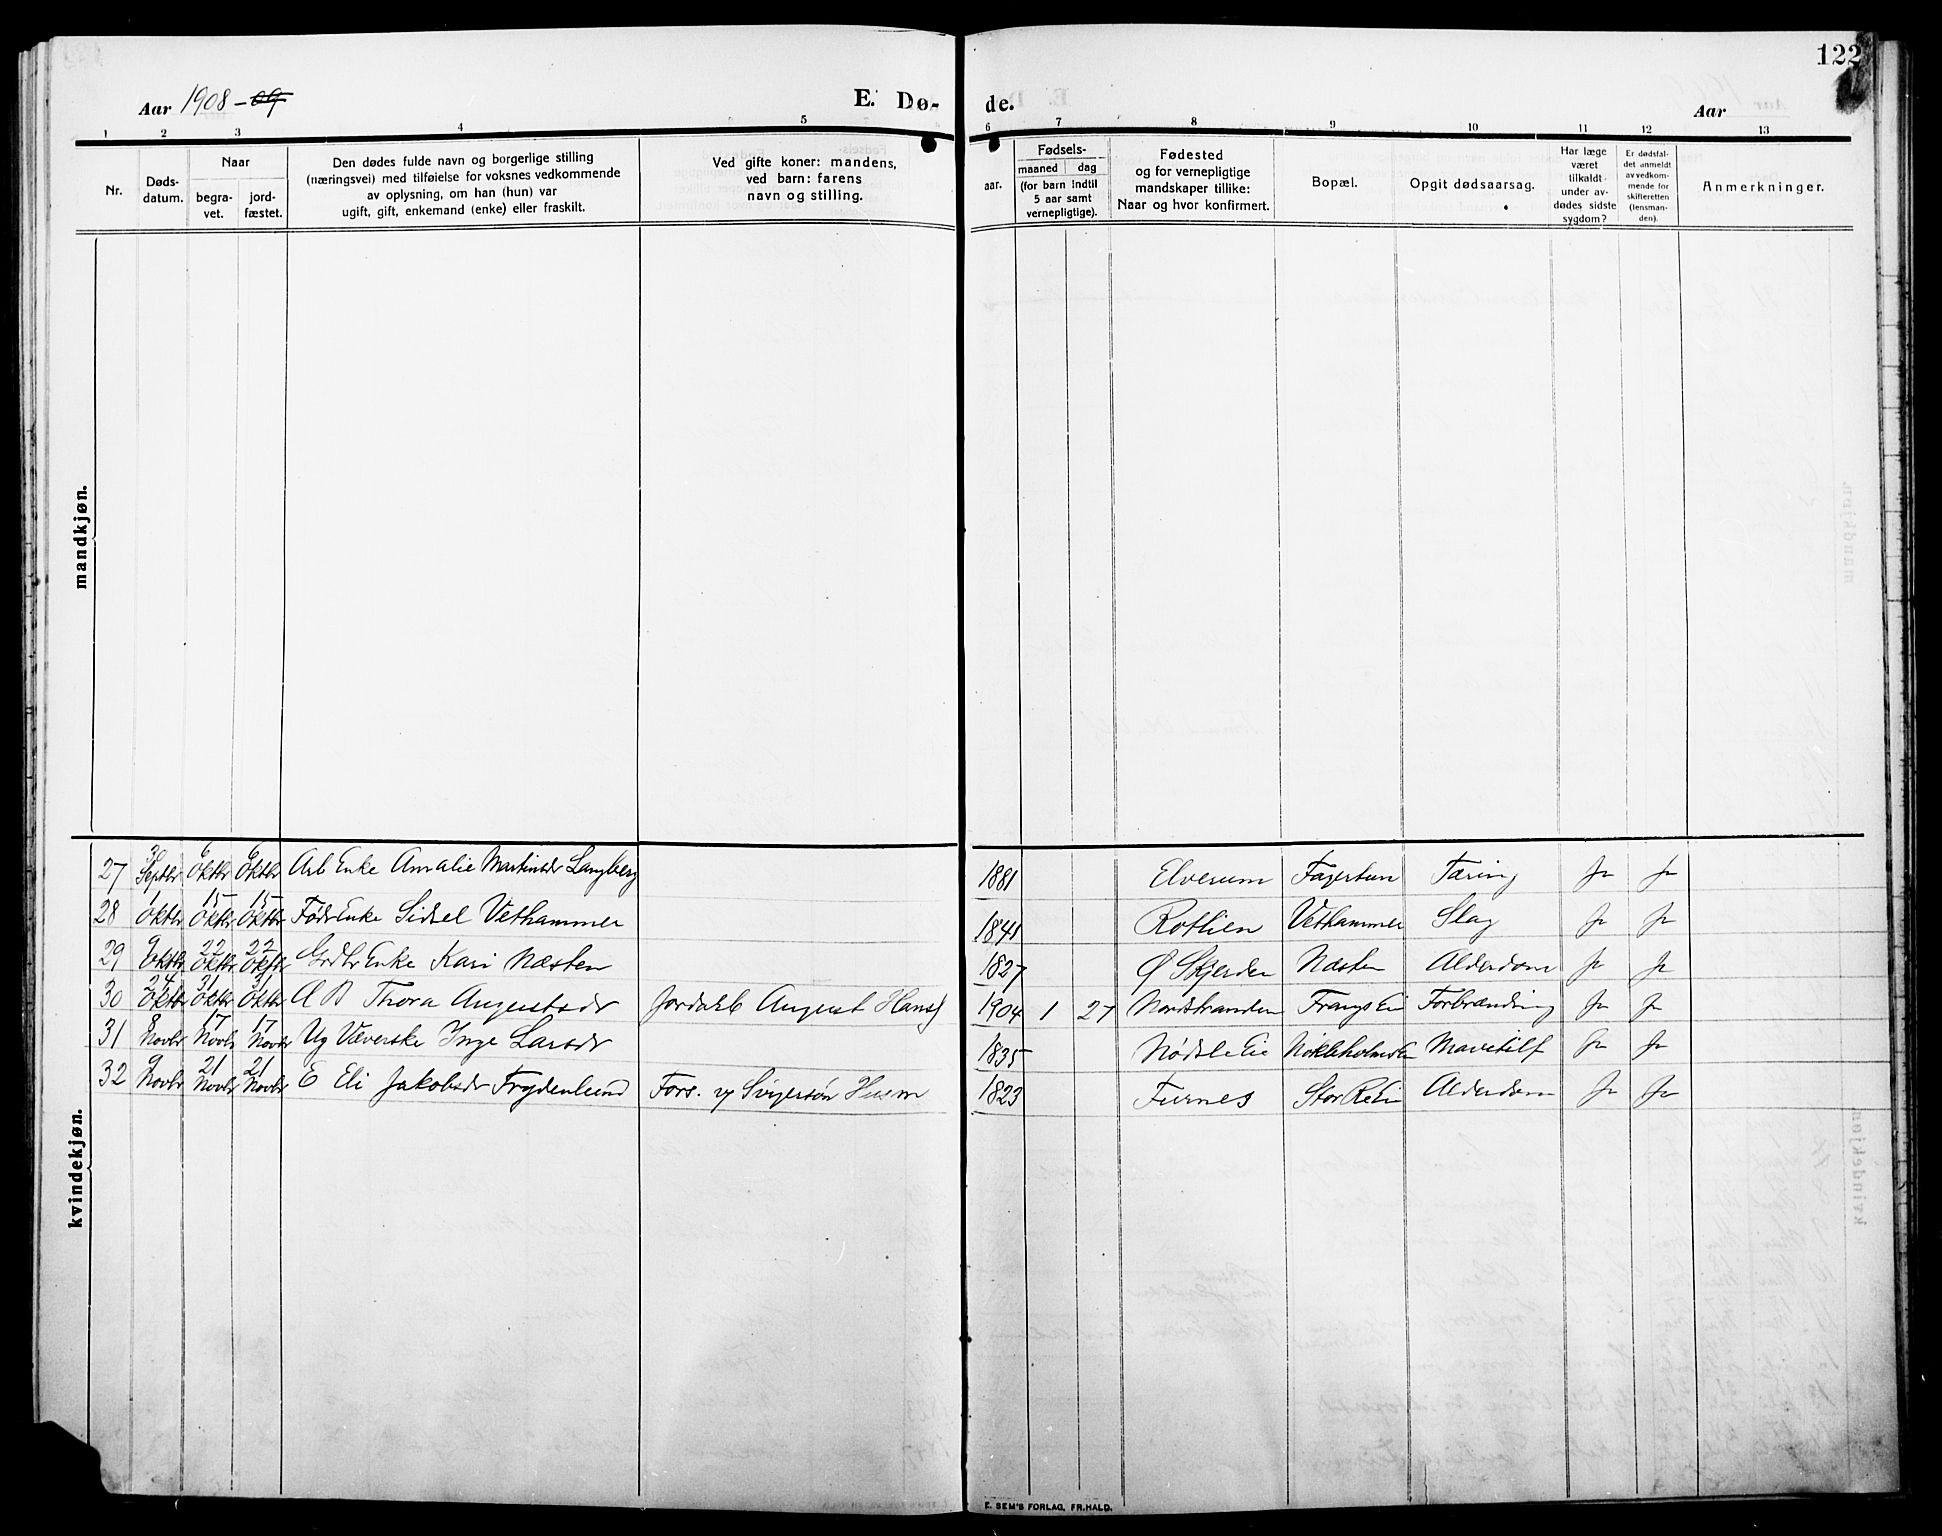 122
Aar 1908 - 09 E. Dø- de. Aar
1 2 3 4 5 6 7 8 9 10 11 12 13
Nr.
Døds-
datum.
Naar
begra-
vet.
jord-
fæstet.
Den dødes fulde navn og borgerlige stilling
(næringsvei) med tilføielse for voksnes vedkommende
av oplysning, om han (hun) var
ugift, gift, enkemand (enke) eller fraskilt.
Ved gifte koner: mandens,
ved barn: farens
navn og stilling.
aar.
Fødsels-
maaned dag
(for barn indtil
5 aar samt
vernepligtige).
Fødested
og for vernepligtige
mandskaper tillike:
Naar og hvor konfirmert.
Bopæl.
Opgit dødsaarsag.
Har læge
været
tilkaldt
under av-
dødes sidste
sygdom?
Er dødsfal-
det anmeldt
av vedkom-
mende for
skifteretten
(lensman-
den).
Anmerkninger.
mandkjøn.
kvindekjøn.
27 Septbr 6 Oktbr 6 Oktbr Arb Enke Amalie Martinsdr Langberg 1881 Elverum Fagertun Tæring ja ja
28 1 Oktbr 15 Oktbr 15 Oktbr Fødr Enke Sidsel Vethammer 1841 Rotlien Vethammer Slag ja ja
29 9 Oktbr 22 Oktbr 22 Oktbr Grdbr Enke Kari Næsten 1827 Ø Skjerden Næsten Alderdom ja ja
30 24 Oktbr 31 Oktbr 31 Oktbr A B Thora Augustsdr Jordarb August Hans 1904 1 27 Nordstranden Frangs Ei Forbrænding ja ja
31 8 Novbr 17 Novbr 17 Novbr Ug Væverske Inge Larsdr 1835 Nødsle Eie Mavetilf ja ja
32 9 Novbr 21 Novbr 21 Novbr E Eli Jakobsdr Frydenlund Fors. af Svigersøn Husm 1823 Furnes Stor Re Ei Alderdom ja ja
E. SEM'S FORLAG, FR.HALD.